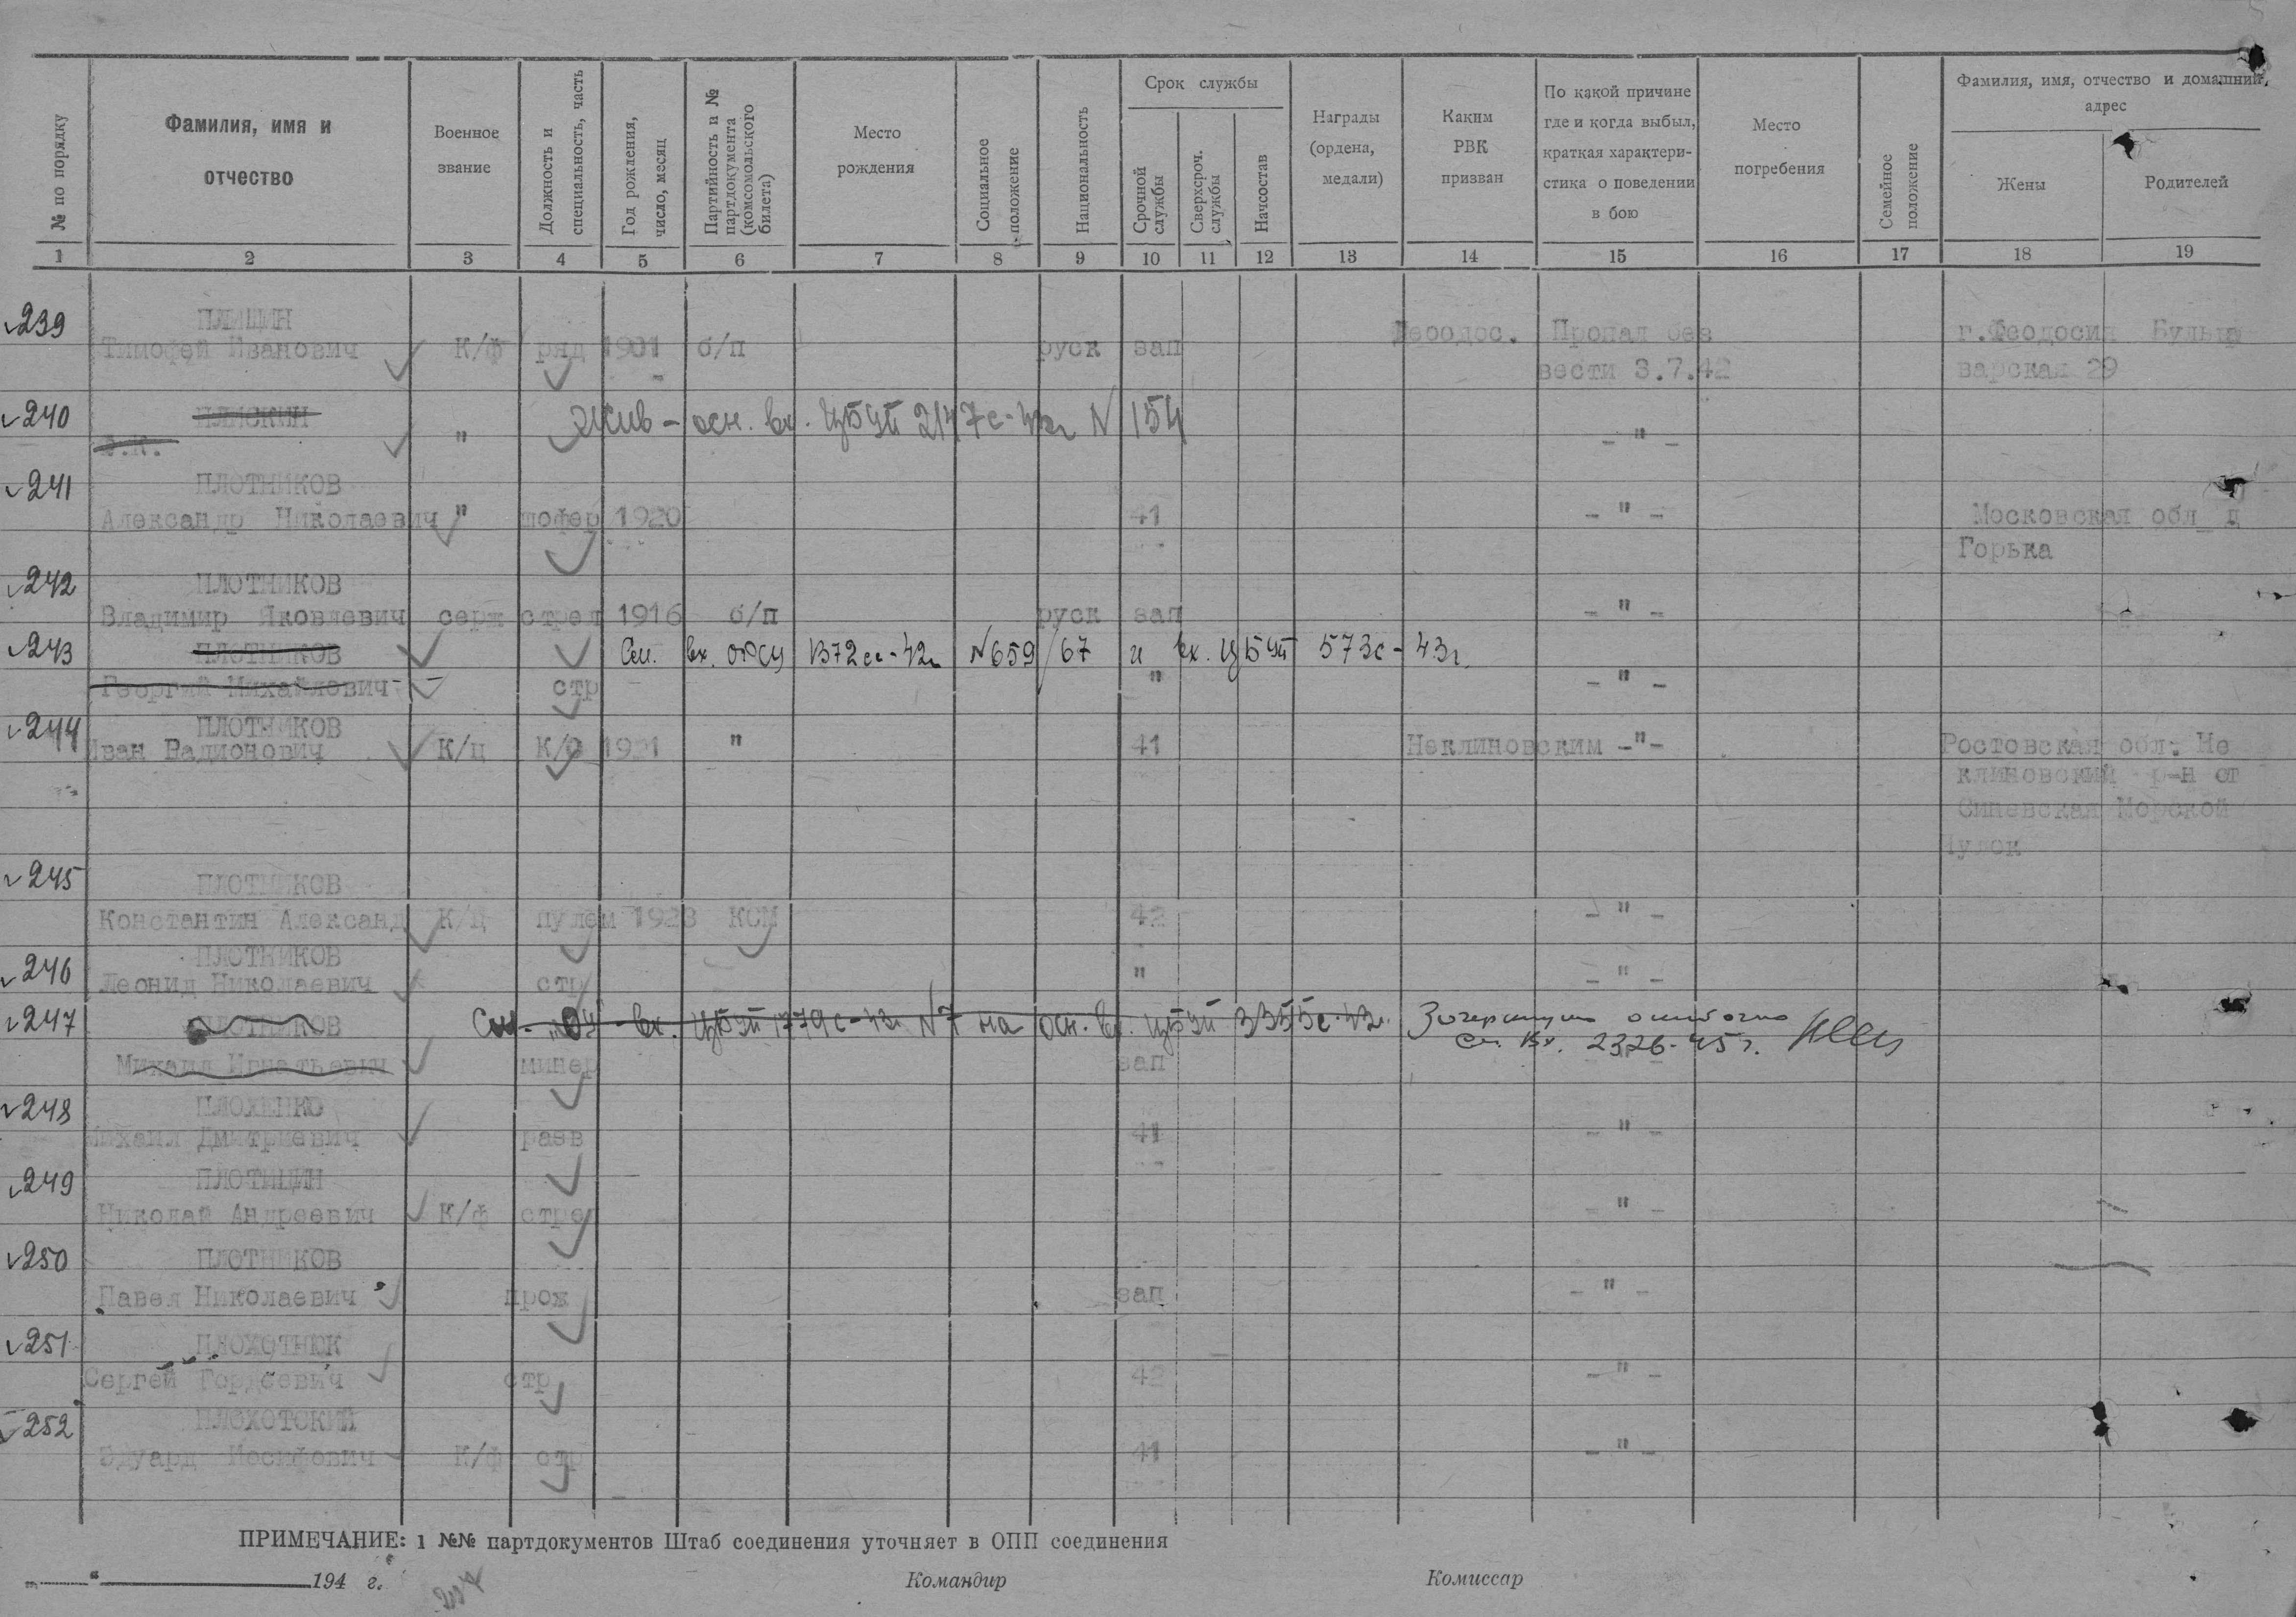 № по порядку
Фамилия, имя и отчество
Военное звание
Должность и специальность, часть
Год рождения, число, месяц
Партийность и № партдокумента (комсомольского билета)
Место рождения
Социальное положение
Национальность
Срок службы
Срочной службы
Сверхсроч. службы
Начсостав
Награды (ордена, медали)
Каким РВК призван
По какой причине где и когда выбыл, краткая характери-стика о поведении в бою
Место погребения
Семейное положение
Фамилия, имя, отчество и домашний, адрес
Жены
Родителей
1 2 3 4 5 6 7 8 9 10 11 12 13 14 15 16 17 18 19
239 ПЛИЦИН
Тимофей Иванович К/ф ряд 1901 б/п руск зап Феодос. Пропал без г.Феодосия Бульв
вести 3.7.42 варская 29
240 Жив - осн. вх. ЦБУП 2147с-43г N 154
" - " -
241 ПЛОТНИКОВ
Александр Николаевич " шофер 1920 41 - " - Московская обл д
Горька
242 ПЛОТНИКОВ
Владимир Яковлевич серж стрел 1916 б/п руск зап - " -
243 ПЛОТНИКОВ См. вх. 1372сс-42г N659/67 и вх. ЦБУП 573с-43г.
Георгий Михайлович стр " - " -
244 ПЛОТНИКОВ
Иван Радионович К/ц К/О 1921 " 41 Неклиновским -"- Ростовская обл. Не
клиновский р-н ст
Синевская Морской
Чулок
245 ПЛОТНИКОВ
Константин Александ К/ц пулем 1923 КСМ 42 - " -
246 ПЛОТНИКОВ
Леонид Николаевич стр " - " -
247 ПЛОТНИКОВ вх. ЦБУП 1779с-43г N7 на осн. вх. ЦБУП 3355с-43г. Зачеркнуто ошибочно
См. вх. 2326-45г.
Михаил Игнатьевич минер зап
248 ПЛОХЕНКО
Михаил Дмитриевич разв 41 - " -
249 ПЛОТИЦИН
Николай Андреевич К/ф стре - " -
250 ПЛОТНИКОВ
Павел Николаевич прож зап - " -
251 ПЛОХОТНЮК
Сергей Гордеевич стр 42 - " -
252 ПЛОХОТСКИЙ
Эдуард Иосифович К/ф стр 41 - " -
ПРИМЕЧАНИЕ: 1 №№ партдокументов Штаб соединения уточняет в ОПП соединения
„ “ 194 г. Командир Комиссар